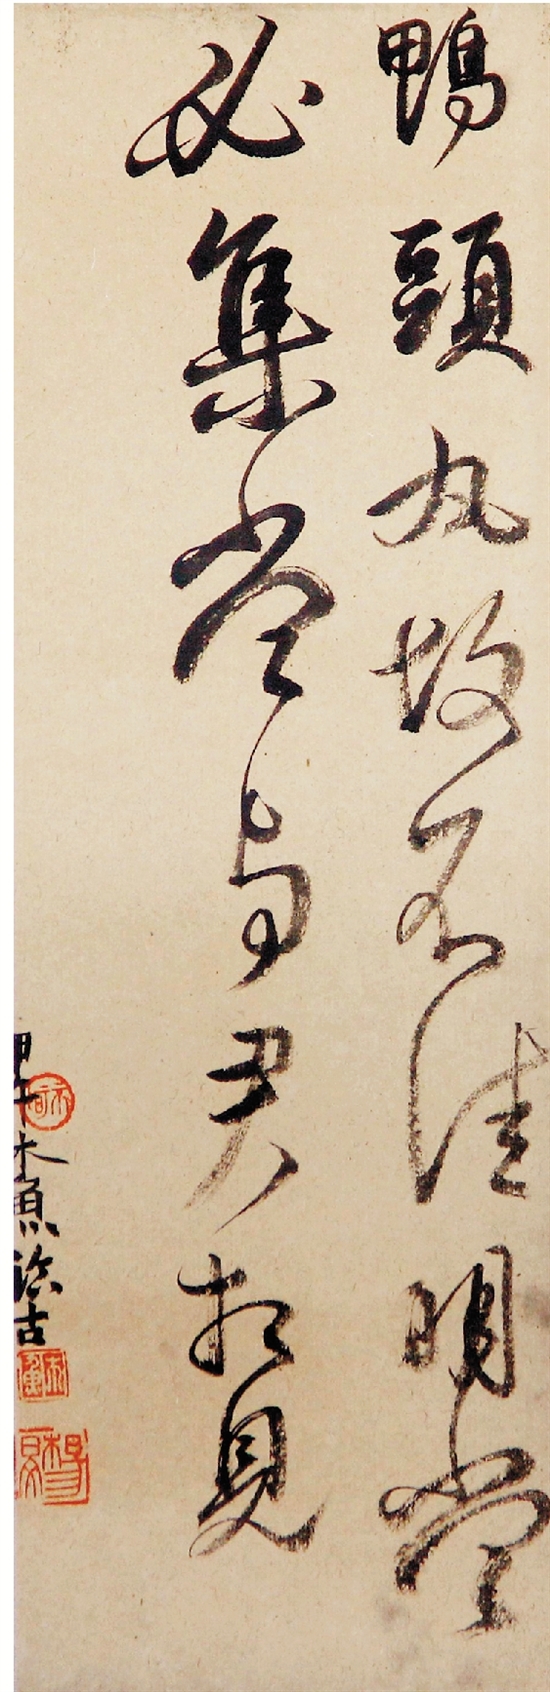 鴨頭丸故不佳明當
必集當与君相見
甲午木魚臨古